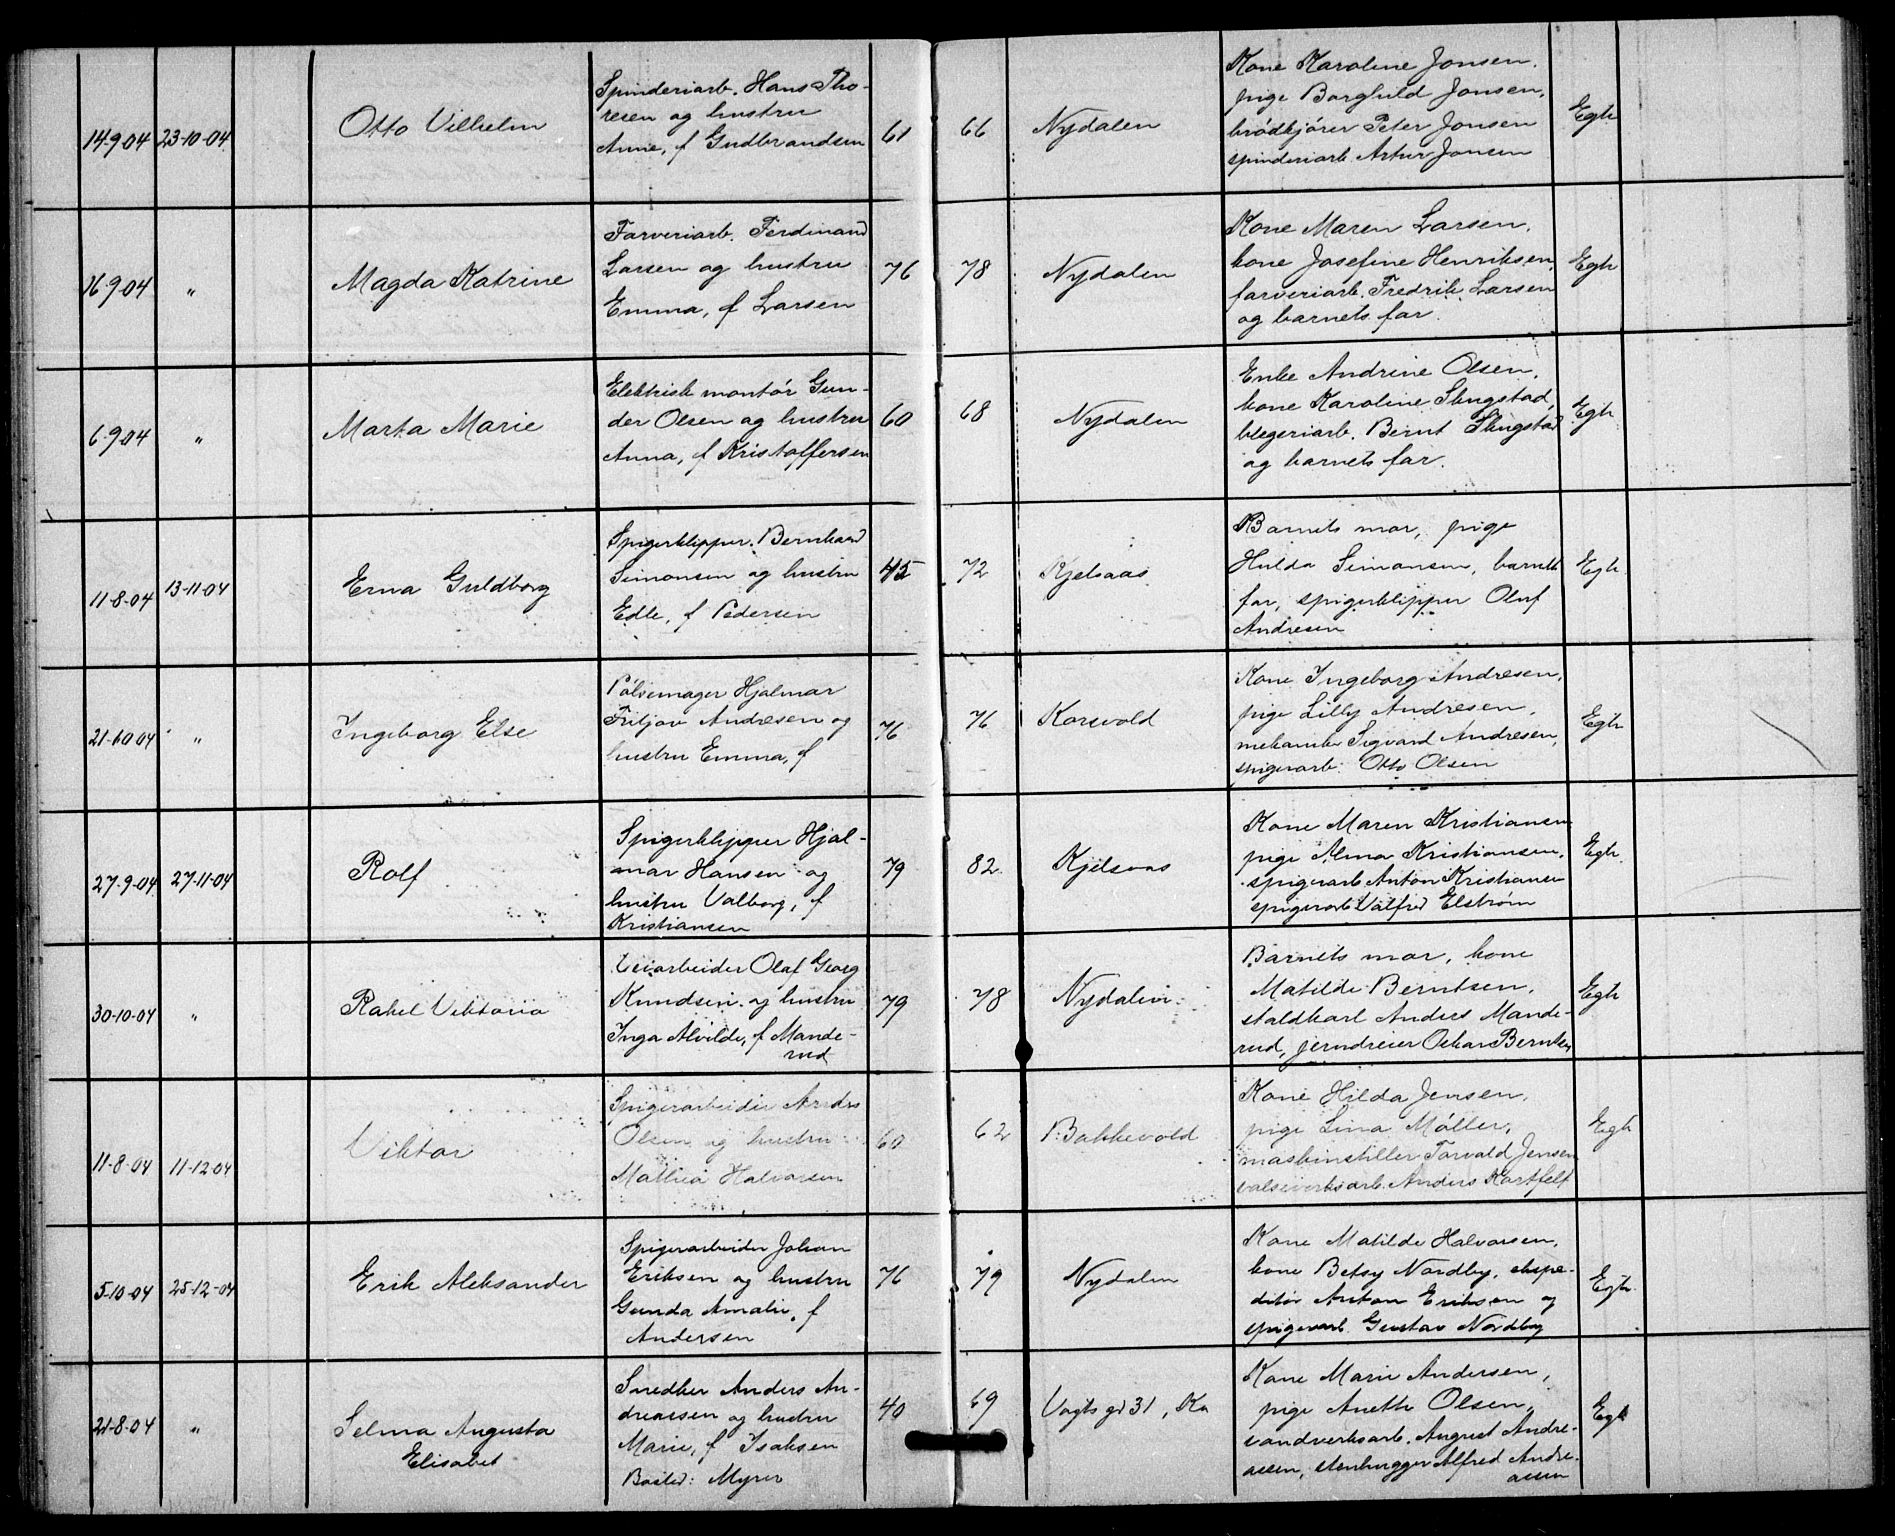 14-9-04 23-10-04 Otto Vilhelm
Spinderiarb. Hans Tho-
resen og hustru
Anne, f Gudbrandsen
61 66 Nydalen
Kone Karoline Jonsen,
pige Borghild Jonsen,
brødkjører Peter Jonsen
spinderiarb. Artur Jonsen
Egh
16-9-04 " Magda Katrine
Farveriarb. Ferdinand
Larsen og hustru
Emma, f Larsen
76 78 Nydalen
Kone Maren Larsen,
kone Josefine Henriksen,
farveriarb. Fredrik Larsen
og barnets far.
Egh
6-9-04 " Marta Marie
Elektrisk montør Gun-
der Olsen og hustru
Anna, f Kristoffersen
60 68 Nydalen
Enke Andrine Olsen,
kone Karoline Slingstad,
blegeriarb. Bernt Slingstad
og barnets far.
Egh
11-8-04 13-11-04 Erna Guldborg
Spigerklipper. Bernhard
Simonsen og hustru
Edle, f Pedersen
45 72 Kjelsaas
Barnets mor, pige
Hulda Simonsen, barnets
far, spigerklipper Oluf
Andresen
Egh.
21-10-04 " Ingeborg Else
Pølsemager Hjalmar
Fritjov Andresen og
hustru Emma, f
76 76 Korsvold
Kone Ingeborg Andresen,
pige Lilly Andresen,
mekaniker Sigvard Andresen,
spigerarb. Otto Olsen
Egh
27-9-04 27-11-04 Rolf
Spigerklipper Hjal-
mar Hansen og
hustru Valborg, f
Kristiansen
79 82 Kjelsaas
Kone Maren Kristiansen
pige Alma Kristiansen,
spigerarb Anton Kristiansen
spigerarb Valfred Elstrøm
Egh.
30-10-04 " Rakel Viktoria
Veiarbeider Olaf Georg
Knudsen og hustru
Inga Alvilde, f Mande-
rud
79 78 Nydalen.
Barnets mor, kone
Matilde Berntsen,
staldkarl Anders Mande-
rud, jerndreier Oskar Berntsen
Egh
11-8-04 11-12-04 Viktor
Spigerarbeider Anders
Olsen og hustru
Mathea Halvorsen
60 62 Bakkevold
Kone Hilda Jensen,
pige Lina Møller,
maskinstiller Torvald Jensen
valseverksarb. Anders Kortfelt
Egh
5-10-04 25-12-04 Erik Aleksander
Spigerarbeider Johan
Eriksen og hustru
Gunda Amalie, f
Andersen
76 79 Nydalen
Kone Matilde Halvorsen,
kone Betsy Nordby, ekspe-
ditør Anton Eriksen og
spigerarb. Gustav Nordby
Egh.
21-8-04 " Selma Augusta
Elisabet
Snedker Anders An-
dreassen og hustru
Marie, f Isaksen
Bosted: Myrer
40 69 Vogts gd 31, Ka
Kone Marie Andersen,
pige Aneth Olsen,
vandverksarb. August Andre-
asen, stenhugger Alfred Andre-
assen
Egh